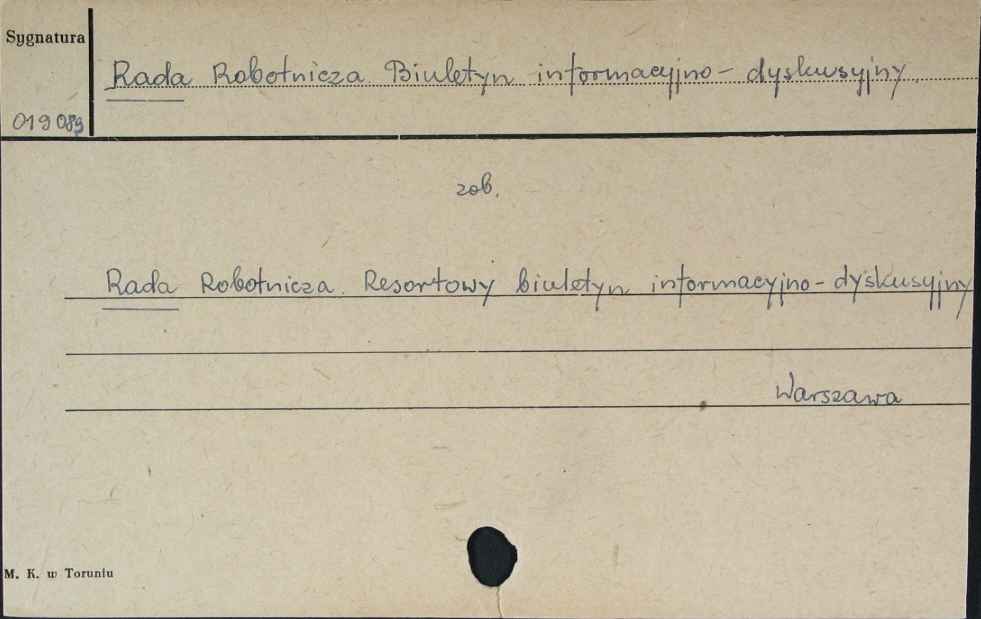 Sygnatura
Rada Robotnicza. Biuletyn informacyjno-dyskusyjny.
019089
zob.
Rada Robotnicza. Resortowy biuletyn informacyjno-dyskusyjny
Warszawa
M. K. w Toruniu